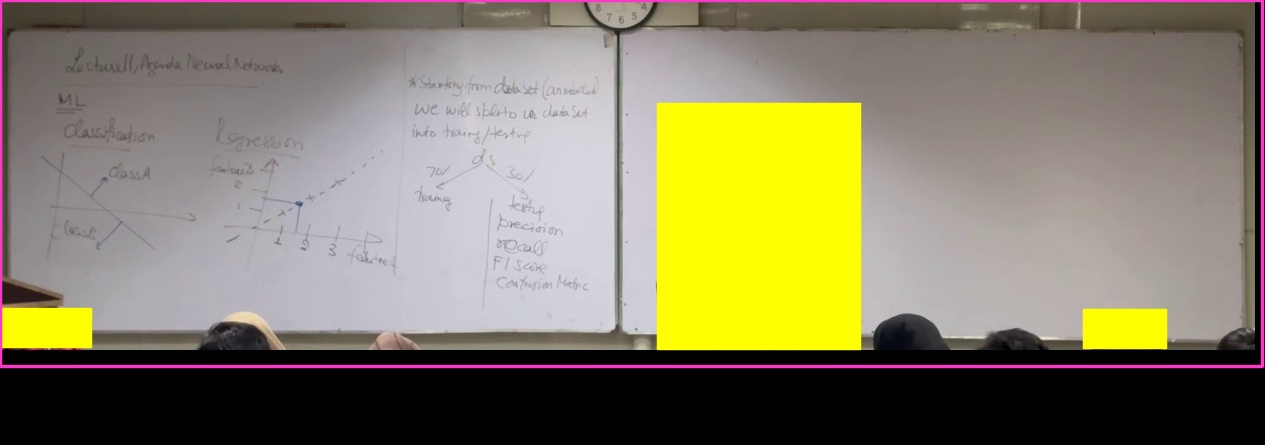 Lecture 11, Agenda Neural Networks
ML
Classification
Class A
Class B
Regression
2
1
1 2 3
* Starting from data set (annotated)
we will split us data set
into traing/testing
ds
70% 30%
training
testing
precision
recall
F1 score
Confusion Matric
8 7 6 5 4